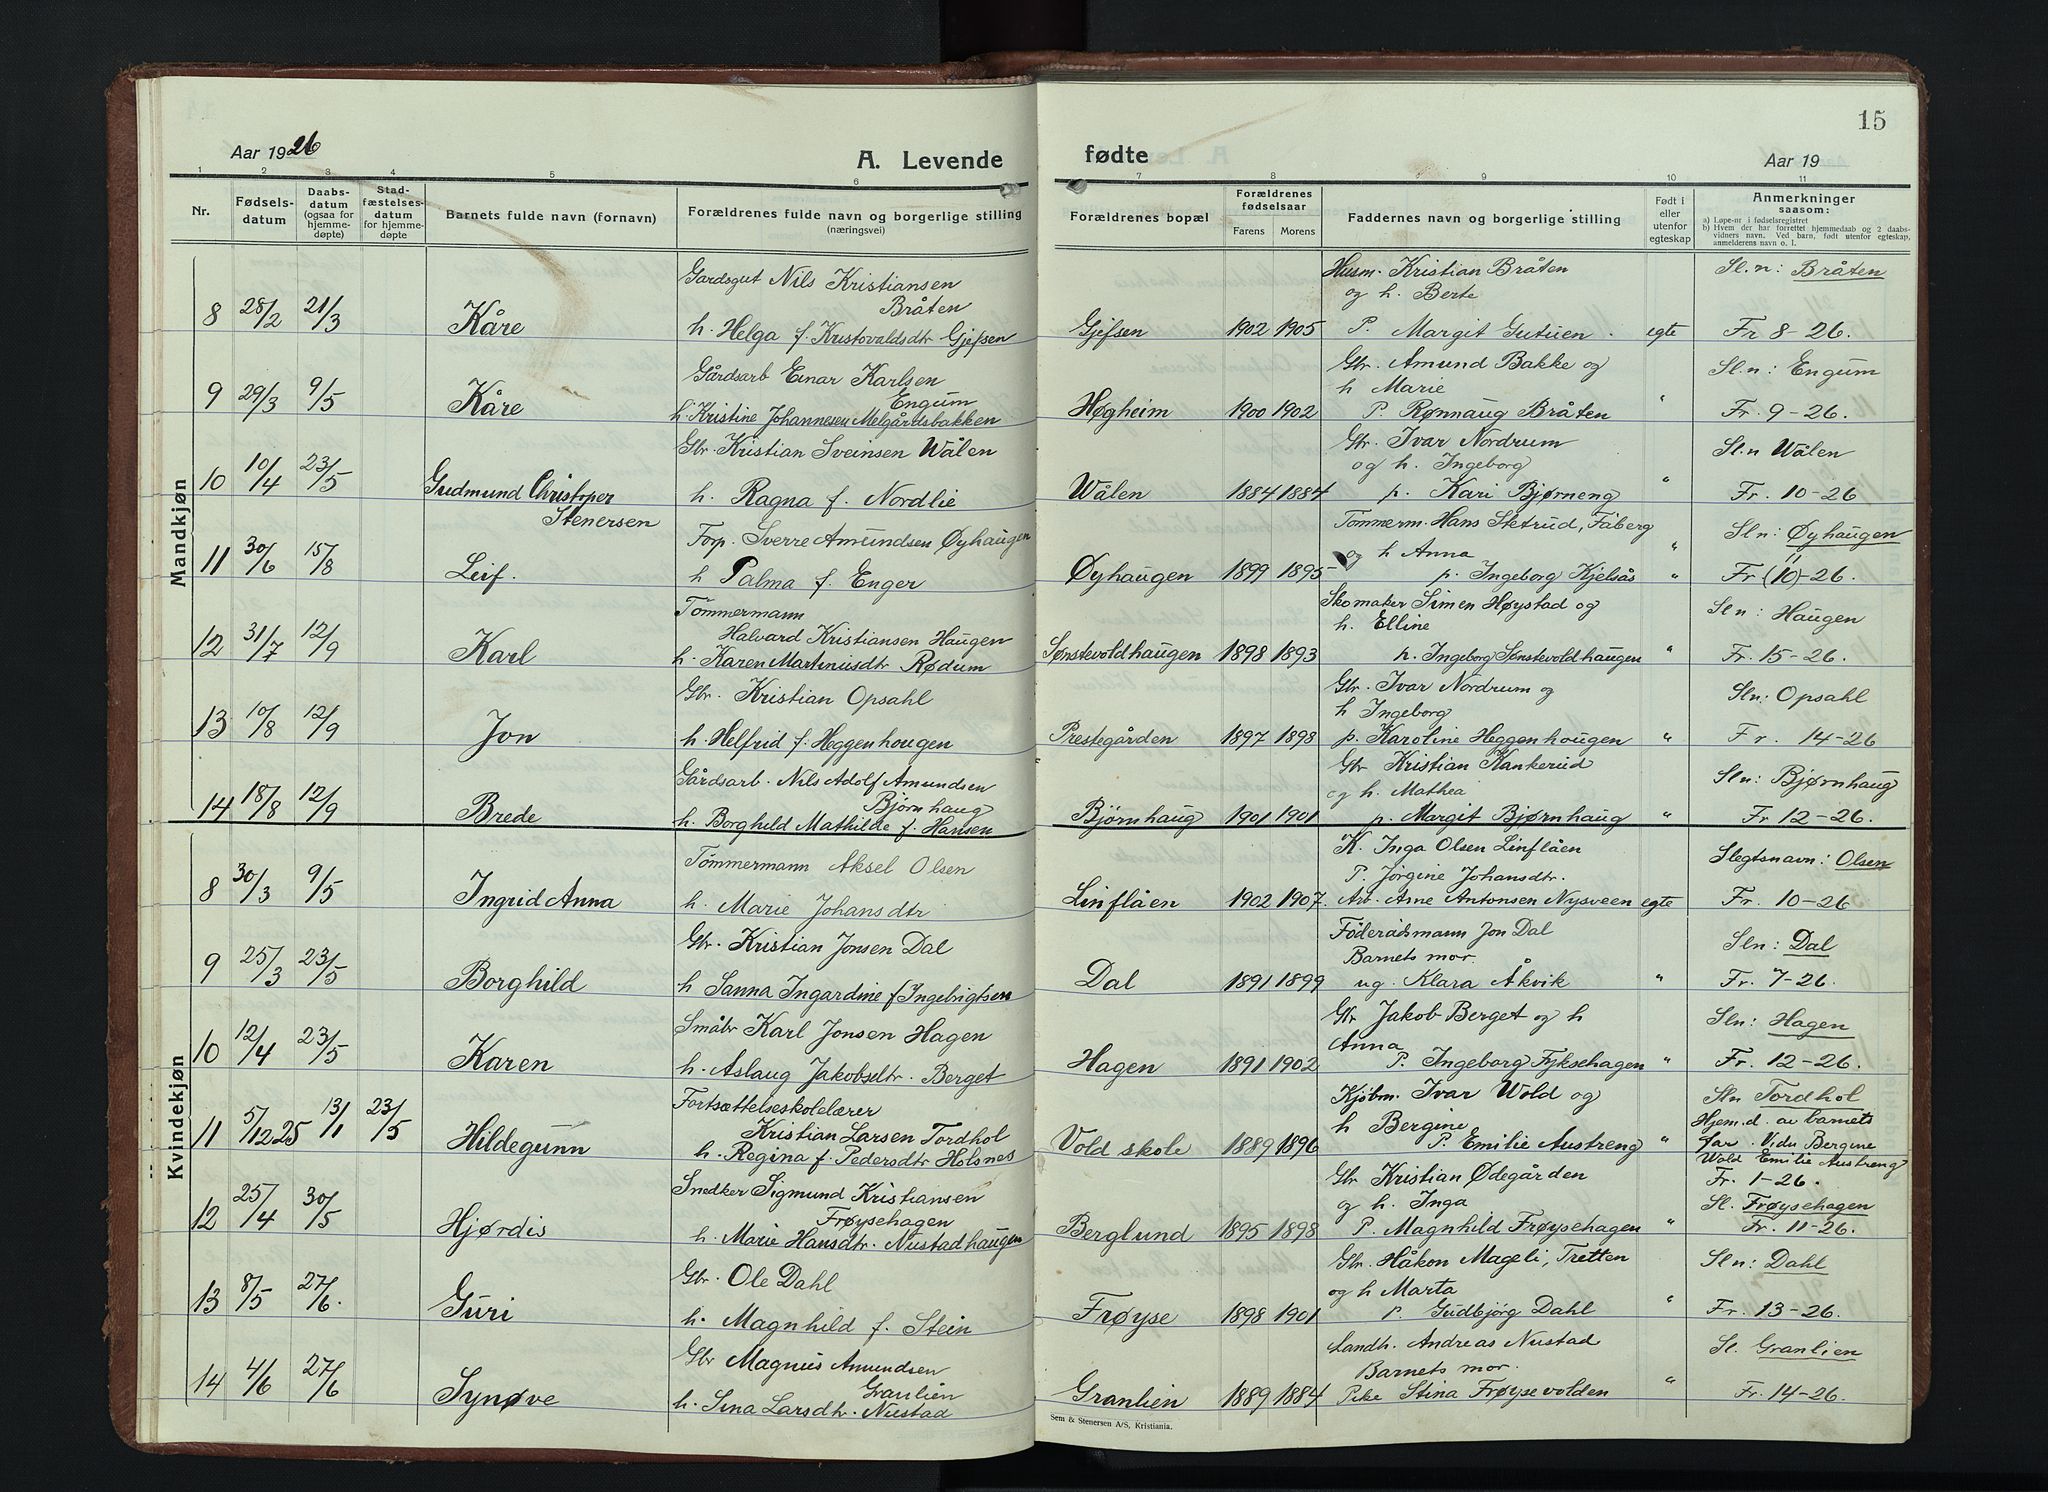 Aar 1926
A. Levende
1 2 3 4 5 6
Nr. Fødsels-datum Daabs-datum (ogsaa for hjemme-døpte) Stad-fæstelses-datum for hjemme-døpte Barnets fulde navn (fornavn) Forældrenes fulde navn og borgerlige stilling (næringsvei)
Mandkjøn
Gardsgut Nils Kristiansen
Bråten
8 28/2 21/3 Kåre h. Helga f. Kristovaldsdtr Gjefsen
Gårdsarb Einar Karlsen
Engum
9 29/3 9/5 Kåre h. Kristine Johannesen Melgårdsbakken
Gbr. Kristian Sveinsen Wålen
10 10/4 23/5 Gudmund Christoper h. Ragna f. Nordlie
Stenersen
Forp. Sverre Amundsen Øyhaugen
11 30/6 15/8 Leif. h Palma f. Enger
Tømmermann
Halvard Kristiansen Haugen
12 31/7 12/9 Karl h. Karen Martinusdtr Rødum
Gbr. Kristian Opsahl
13 10/8 12/9 Jon h. Helfrid f. Heggenhougen
Gårdsarb. Nils Adolf Amundsen
Bjørnhaug
14 18/8 12/9 Brede h. Borghild Mathilde f. Hansen
Kvindekjøn
Tømmermann Aksel Olsen
8 30/3 9/5 Ingrid Anna h. Marie Johansdtr
Gbr. Kristian Jonsen Dal
9 25/3 23/5 Borghild h Sanna Ingardine f Ingebrigtsen
Småbr Karl Jonsen Hagen
10 12/4 23/5 Karen h. Aslaug Jakobsdtr. Berget
Fortsættelseskolelærer
Kristian Larsen Tordhol
11 5/12 25 13/1 23/5 Hildegunn h. Regina f. Pedersdtr Holsnes
Snedker Sigmund Kristiansen
Frøysehagen
12 25/4 30/5 Hjørdis h. Marie Hansdtr. Nustadhaugen
Gbr. Ole Dahl
13 8/5 27/6. Guri h. Magnhild f. Stein
Gbr Magnus Amundsen
Granlien
14 4/6 27/6 Synøve h. Sina Larsdtr. Nustad
15
fødte
Aar 19
7 8 9 10 11
Forældrenes bopæl Forældrenes fødselsaar Farens Morens Faddernes navn og borgerlige stilling Født i eller utenfor egteskap Anmerkninger saasom:
a) Løpe-nr i fødselsregistret
b) Hvem der har forrettet hjemmedaab og 2 daabs-vidners navn. Ved barn, født utenfor egteskap, anmelderens navn o. l.
Husm. Kristian Bråten Sl.n: Bråten
og h. Berte
Gjefsen 1902 1905 P. Margit Gutuen. egte Fr 8-26.
Gbr. Amund Bakke og Sl.n: Engum
h Marie
Høgheim 1900 1902 P. Rønnaug Bråten " Fr. 9-26.
Gbr. Ivar Nordrum Sl.n Wålen
og h. Ingeborg
Wålen 1884 1884 p. Kari Bjørneng " Fr. 10-26
Tømmerm. Hans Stetrud, Fåberg Sln: Øyhaugen
og h Anna " 11
Øyhaugen 1899 1895 p. Ingeborg Kjelsås " Fr (10)-26.
Skomaker Simen Høystad og Sln: Haugen
h. Elline
Sønstevoldhaugen 1898 1893 p. Ingeborg Sønstevoldhaugen " Fr. 15-26.
Gbr. Ivar Nordrum og Sln: Opsahl
h Ingeborg
Prestegården 1897 1898 p. Karoline Heggenhougen " Fr. 14-26
Gbr Kristian Kankerud Sln: Bjørnhaug
og h. Mathea
Bjørnhaug 1901 1901 p. Margit Bjørnhaug " Fr 12-26.
K. Inga Olsen Linflåen Slegtsnavn: Olsen
P. Jørgine Johansdtr.
Linflåen 1902 1907 Arb. Arne Antonsen Nysveen egte Fr. 10-26
Føderådsmann Jon Dal Sln: Dal
Barnets mor.
Dal 1891 1899 ug. Klara Åkvik " Fr. 7-26.
Gbr Jakob Berget og h Sln: Hagen
Anna
Hagen 1891 1902 P. Ingeborg Fyksehagen " Fr. 12-26.
Kjøbm. Ivar Wold og Sln Tordhol
h Bergine Hjem.d. av barnets
Vold skole 1889 1896 P. Emilie Austreng " far. Vidn Bergine
Wold Emilie Austreng
Gbr Kristian Ødegården Fr. 1-26.
og h. Inga Sl. Frøysehagen
Berglund 1895 1898 P. Magnhild Frøysehagen " Fr. 11-26.
Gbr. Håkon Mageli, Tretten Sln: Dahl
og h Marta
Frøyse 1898 1901 p. Gudbjørg Dahl " Fr. 13-26.
Landh. Andreas Nustad Sl. Granlien
Barnets mor.
Granlien 1889 1884 Pike Stina Frøysevolden " Fr. 14-26.
Sem & Stenersen A/S, Kristiania.